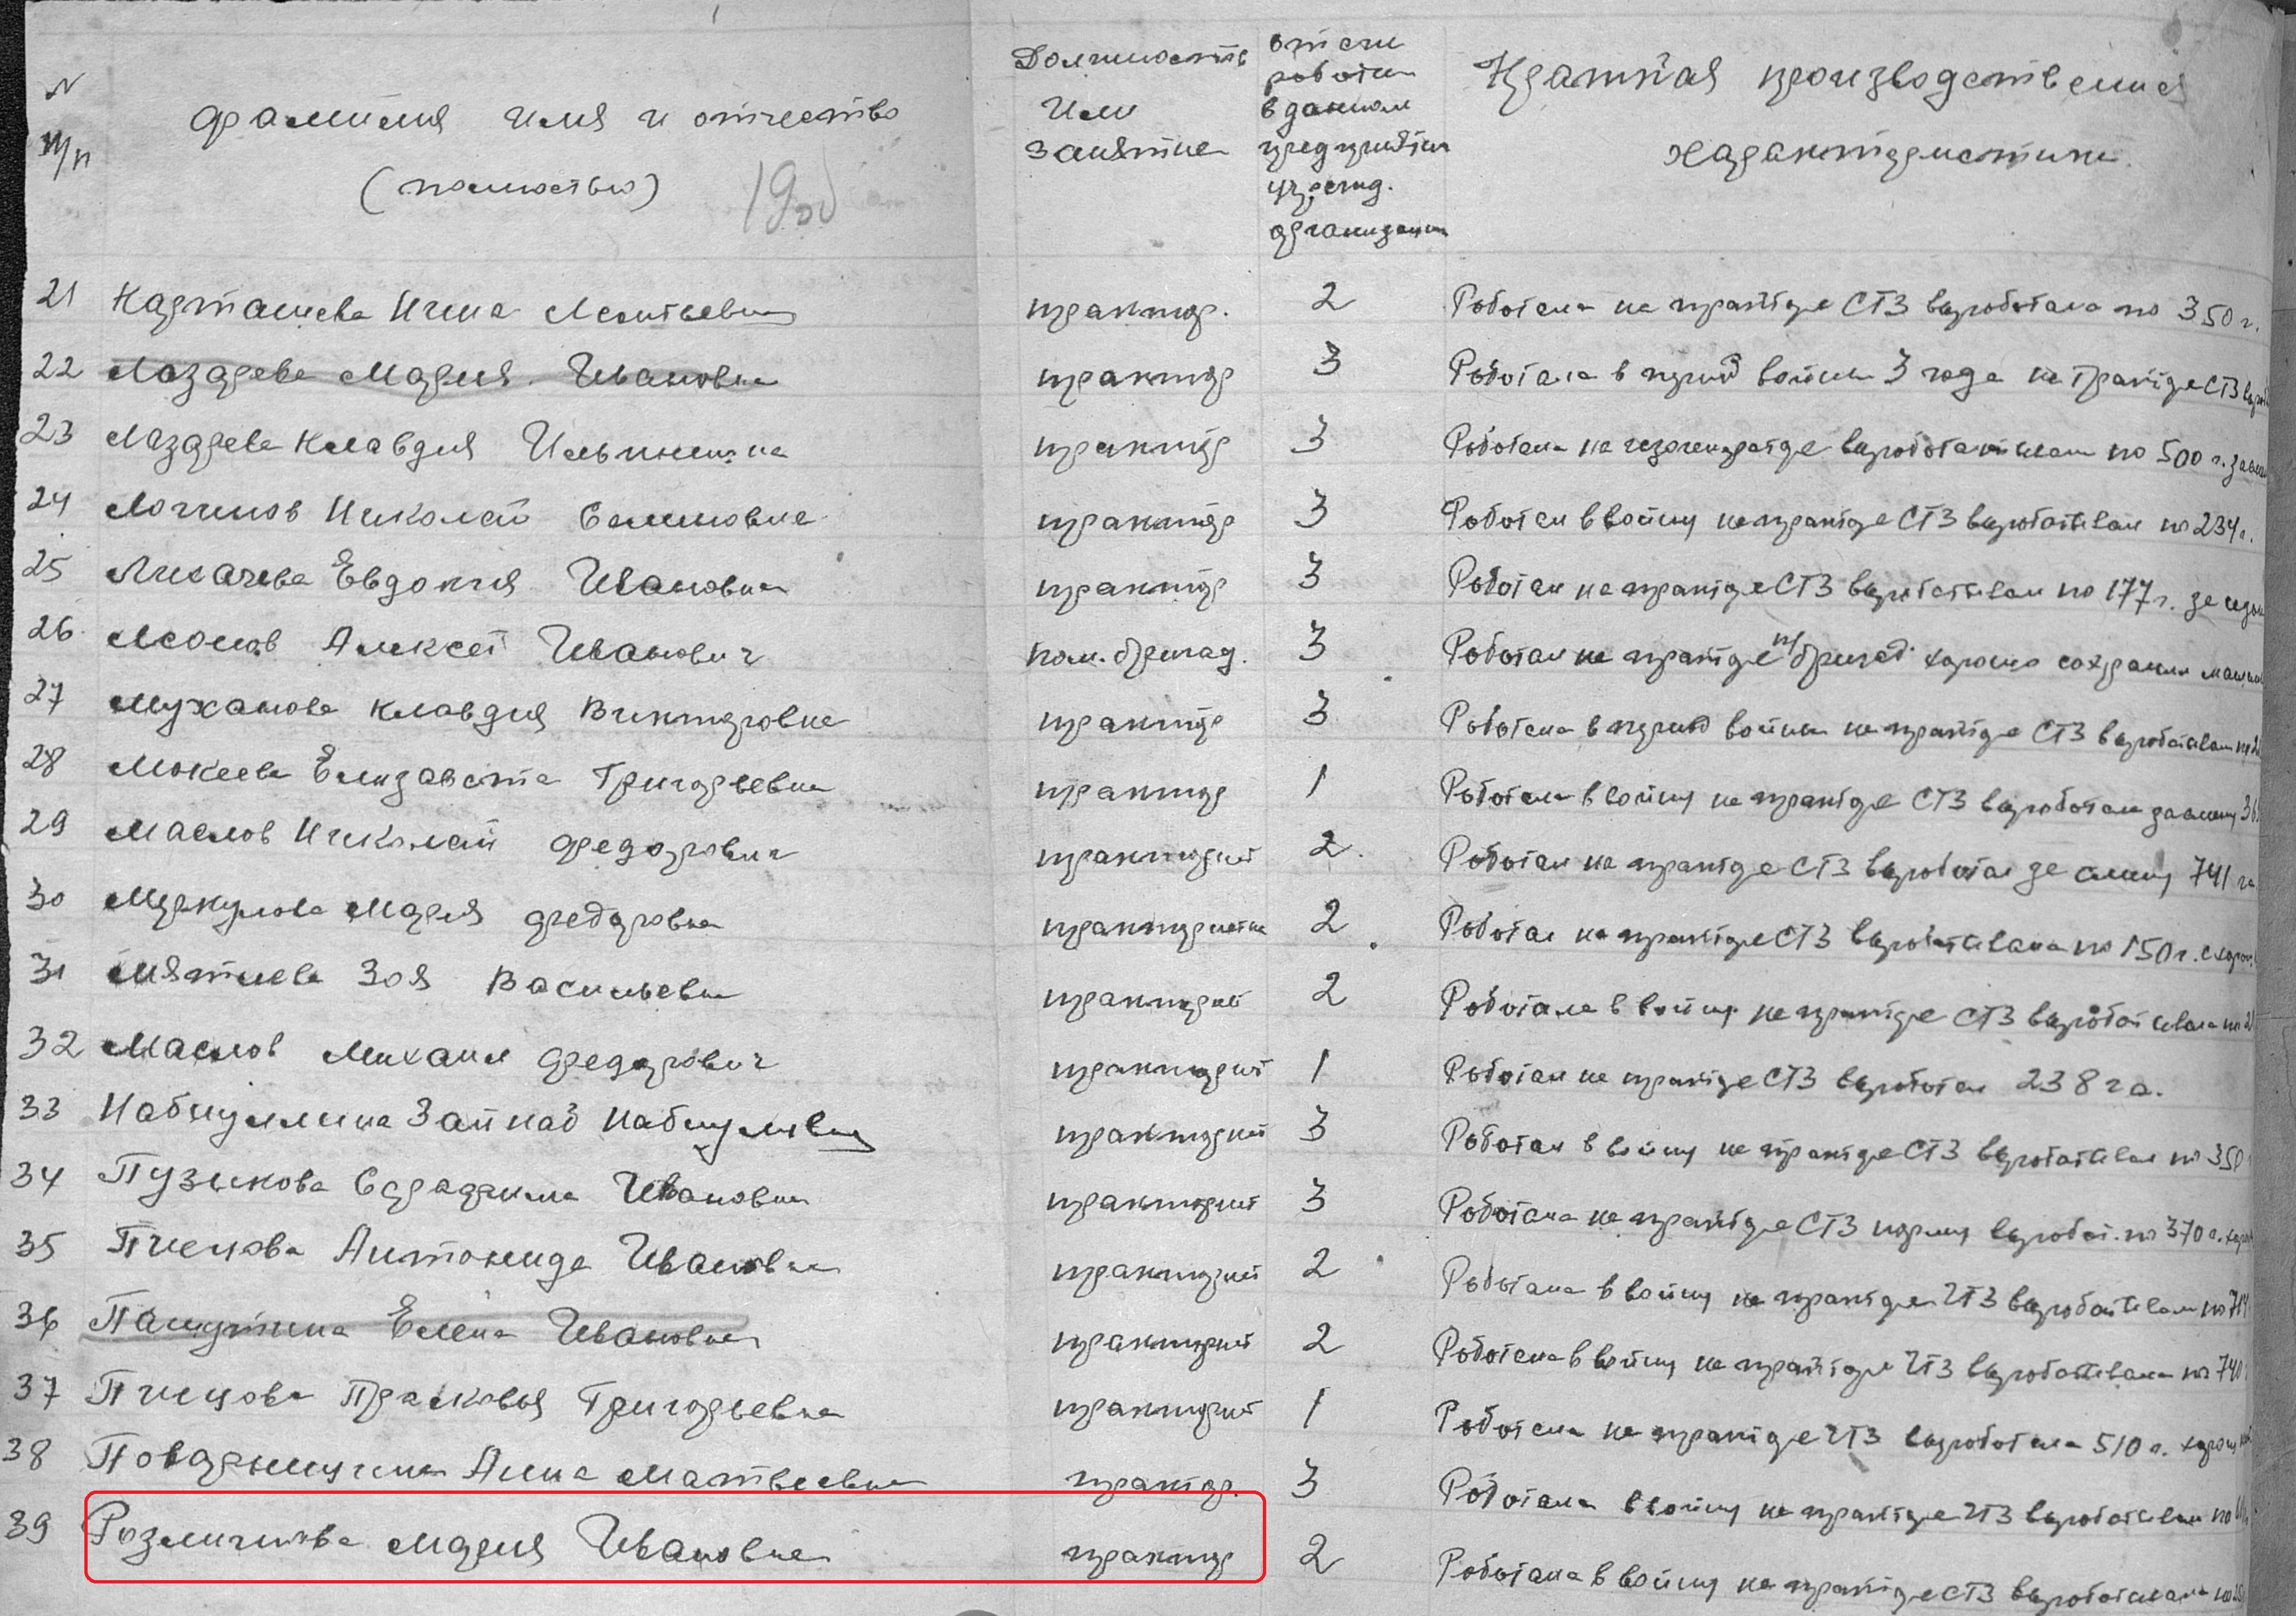 N п/п
Фамилия имя и отчество
(полностью)
Должность
или
занятие
работы
в данном
предприятии
учрежд.
организации
Краткая производственная
характеристика.
21 Карташева Нина Леонтьевна трактор. 2 Работала на тракторе СТЗ выработала по 350 г.
22 Лазарева Мария Ивановна трактор 3 Работала в период войны 3 года на тракторе СТЗ
23 Лазарева Клавдия Ильинишна трактор 3 Работала на выработывали по 500 г.
24 Логинов Николай трактор 3 Работал в войну на тракторе СТЗ выработывал по 234 г.
25 Лихачева Евдокия Ивановна трактор 3 Работал на тракторе СТЗ выработывал по 177 г. за сезон
26 Алексей Иванович пом. бригад. 3 Работал на тракторе п/бригад. хорошо сохранял
27 Муханова Клавдия Викторовна трактор 3 Работала в период войны на тракторе СТЗ выработывал
28 Мокеева Елизавета Григорьевна трактор 1 Работала в войну на тракторе СТЗ выработала за смену
29 Маслов Николай Федорович тракторист 2 Работал на тракторе СТЗ выработал за смену 741 га
30 Меркулова Мария Федоровна трактористка 2 Работал на тракторе СТЗ выработывала по 150 г.
31 Мятлева Зоя Васильевна тракторист 2 Работала в войну на тракторе СТЗ выработывала
32 Маслов Михаил Федорович тракторист 1 Работал на тракторе СТЗ выработал 238 га.
33 Набиуллина Зайнаб тракторист 3 Работал в войну на тракторе СТЗ выработывал по 350
34 Пузыкова Ивановна тракторист 3 Работала на тракторе СТЗ норму выработ. по 370 г.
35 Антонида Ивановна тракторист 2 Работала в войну на тракторе ЧТЗ выработывал по
36 Панютина Елена Ивановна тракторист 2 Работала в войну на тракторе ЧТЗ выработывала по 740
37 Прасковья Григорьевна тракторист 1 Работала на тракторе ЧТЗ выработала 510 г.
38 Анна Матвеевна трактор. 3 Работала в войну на тракторе ЧТЗ выработывал по
39 Мария Ивановна трактор 2 Работала в войну на тракторе СТЗ выработывала